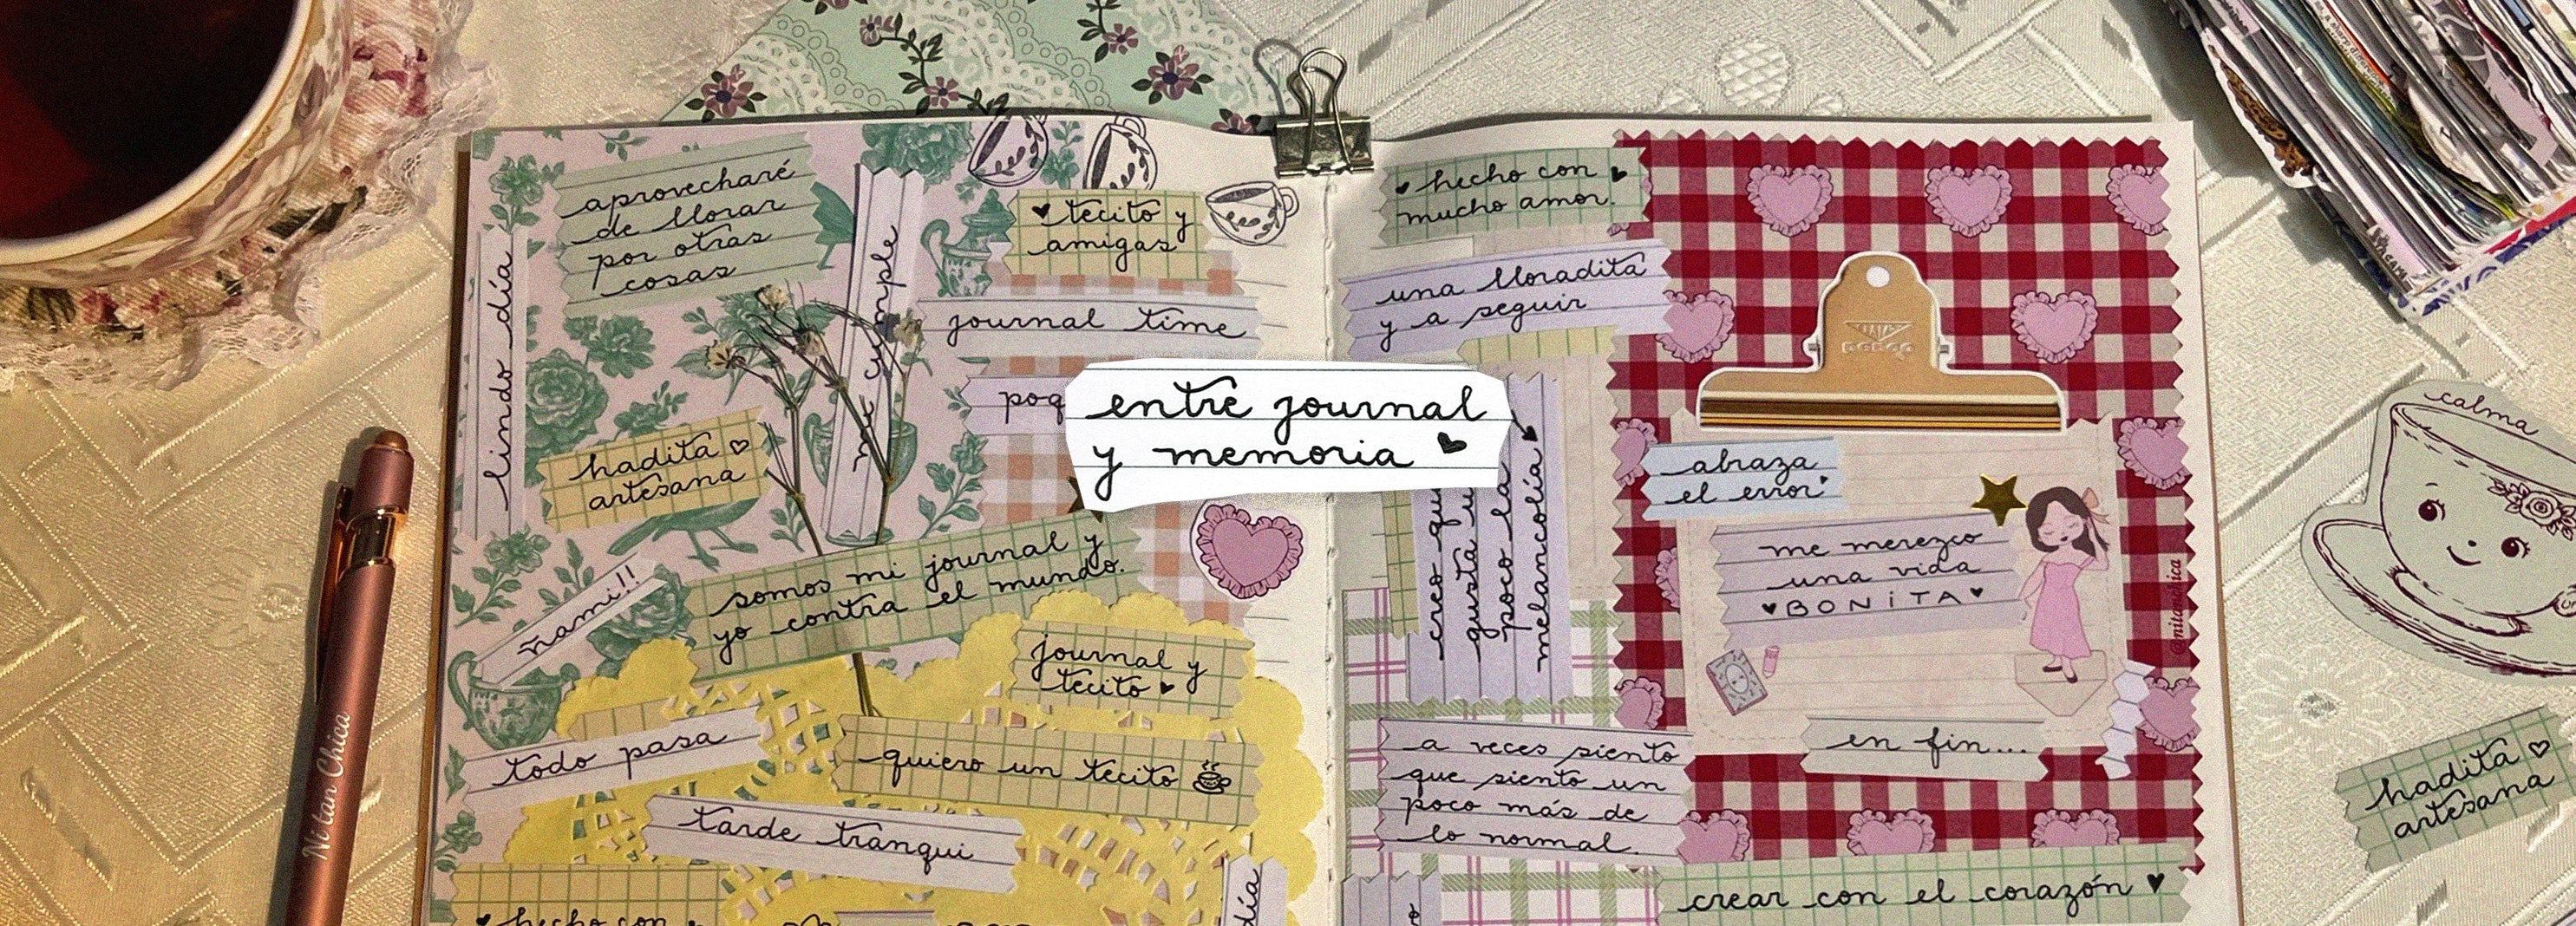 aprovecharé
de llorar
por otras
cosas
lindo día
mi cumple
♥ tecito y
amigas
journal time
poq
hadita ♡
artesana
ñami!!
somos mi journal y
yo contra el mundo.
journal y
tecito ♥
todo pasa
quiero un tecito
tarde tranqui
♥ hecho con
día
entre journal
y memoria ♥
♥ hecho con ♥
mucho amor.
una lloradita
y a seguir
creo que
gusta u
poco la
melancolía ♥
abraza
el error
me merezco
una vida
♥ BONiTA ♥
en fin...
a veces siento
que siento un
poco más de
lo normal.
crear con el corazón ♥
@nitanchica
calma
hadita ♡
artesana
Ni tan Chica